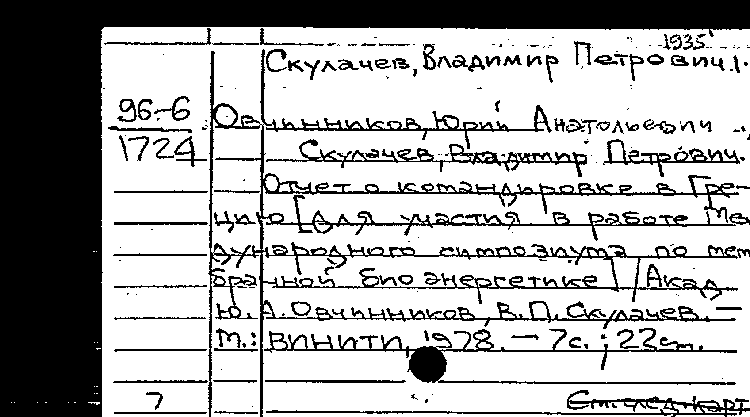 1935
Скулачев, Владимир Петрович.
96-6 Овчинников, Юрий Анатольевич
1724 Скулачев, Владимир Петрович.
Отчет о командировке в Гре-
цию [для участия в работе Меж
дународного симпозиума по мем
бранной биоэнергетике] / Акад
Ю. А. Овчинников, В. П. Скулачев. —
М.: ВИНИТИ, 1978. — 7с.; 22см.
7 См. след. карт